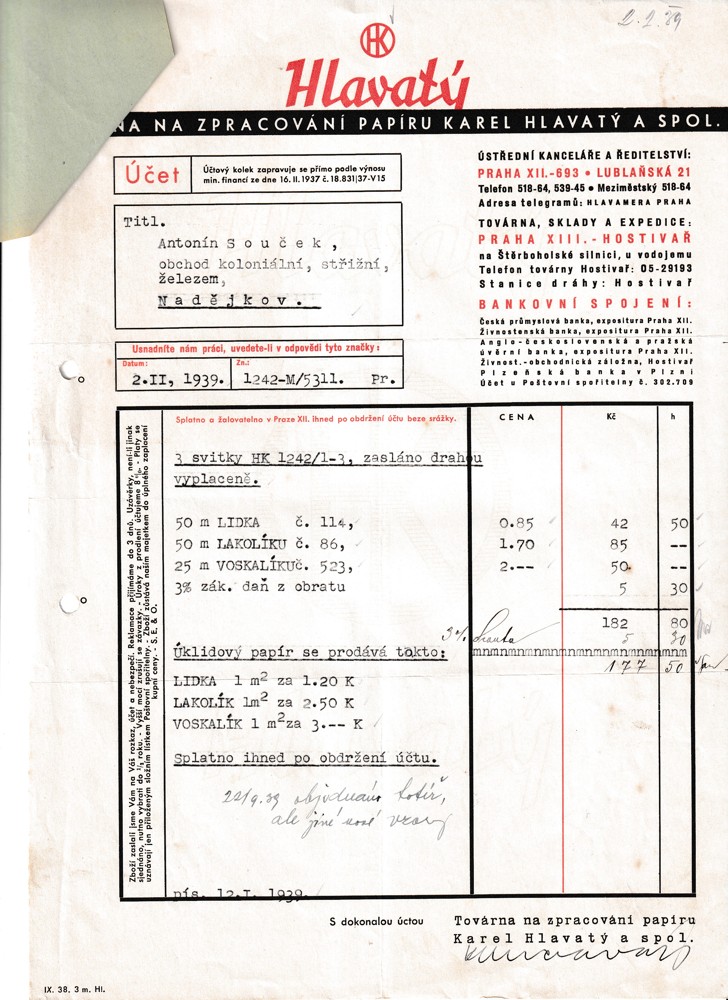 2.2.39
HK
Hlavatý
NA NA ZPRACOVÁNÍ PAPÍRU KAREL HLAVATÝ A SPOL.
Účet
Účtový kolek zapravuje se přímo podle výnosu
min. financí ze dne 16. II. 1937 č. 18.831|37-V15
ÚSTŘEDNÍ KANCELÁŘE A ŘEDITELSTVÍ:
PRAHA XII.-693 • LUBLAŇSKÁ 21
Telefon 518-64, 539-45 • Meziměstský 518-64
Adresa telegramů: HLAVAMERA PRAHA
TOVÁRNA, SKLADY A EXPEDICE:
PRAHA XIII.-HOSTIVAŘ
na Štěrboholské silnici, u vodojemu
Telefon továrny Hostivař: 05-29193
Stanice dráhy: Hostivař
BANKOVNÍ SPOJENÍ:
Česká průmyslová banka, expositura Praha XII.
Živnostenská banka, expositura Praha XII.
Anglo-československá a pražská
úvěrní banka, expositura Praha XII.
Živnost.-obchodnická záložna, Hostivař
Plzeňská banka v Plzni
Účet u Poštovní spořitelny č. 302.709
Titl.
Antonín Souček,
obchod koloniální, střižní,
železem,
Nadějkov.
Usnadníte nám práci, uvedete-li v odpovědi tyto značky:
Datum: Zn.:
2.II, 1939. 1242-M/5311. Pr.
Splatno a žalovatelno v Praze XII. ihned po obdržení účtu beze srážky.
CENA Kč h
3 svitky HK 1242/1-3, zasláno drahou
vyplaceně.
50 m LIDKA č. 114, 0.85 42 50
50 m LAKOLÍKU č. 86, 1.70 85 --
25 m VOSKALÍKUč. 523, 2.-- 50 --
3% zák. daň z obratu 5 30
182 80
3% 5 30
Úklidový papír se prodává takto: mnmnmnmnmnmnmnmnmnmnmnmnm
177 50
LIDKA 1 m² za 1.20 K
LAKOLÍK 1m² za 2.50 K
VOSKALÍK 1 m²za 3.-- K
Splatno ihned po obdržení účtu.
ale jiné
pís. 12.I. 1939.
Zboží zaslali jsme Vám na Váš rozkaz, účet a nebezpečí. Reklamace přijímáme do 3 dnů. Uzávěrky, není-li jinak
sjednáno, nutno vybrati do ½ roku. - Vyšší moc zrušují se závazky. - Úroky z prodlení účtujeme 8%. - Platy se
uznávají jen přiloženým složním lístkem Poštovní spořitelny. - Zboží zůstává naším majetkem do úplného zaplacení
kupní ceny. - S. E. & O.
S dokonalou úctou
Továrna na zpracování papíru
Karel Hlavatý a spol.
IX. 38. 3 m. Hl.